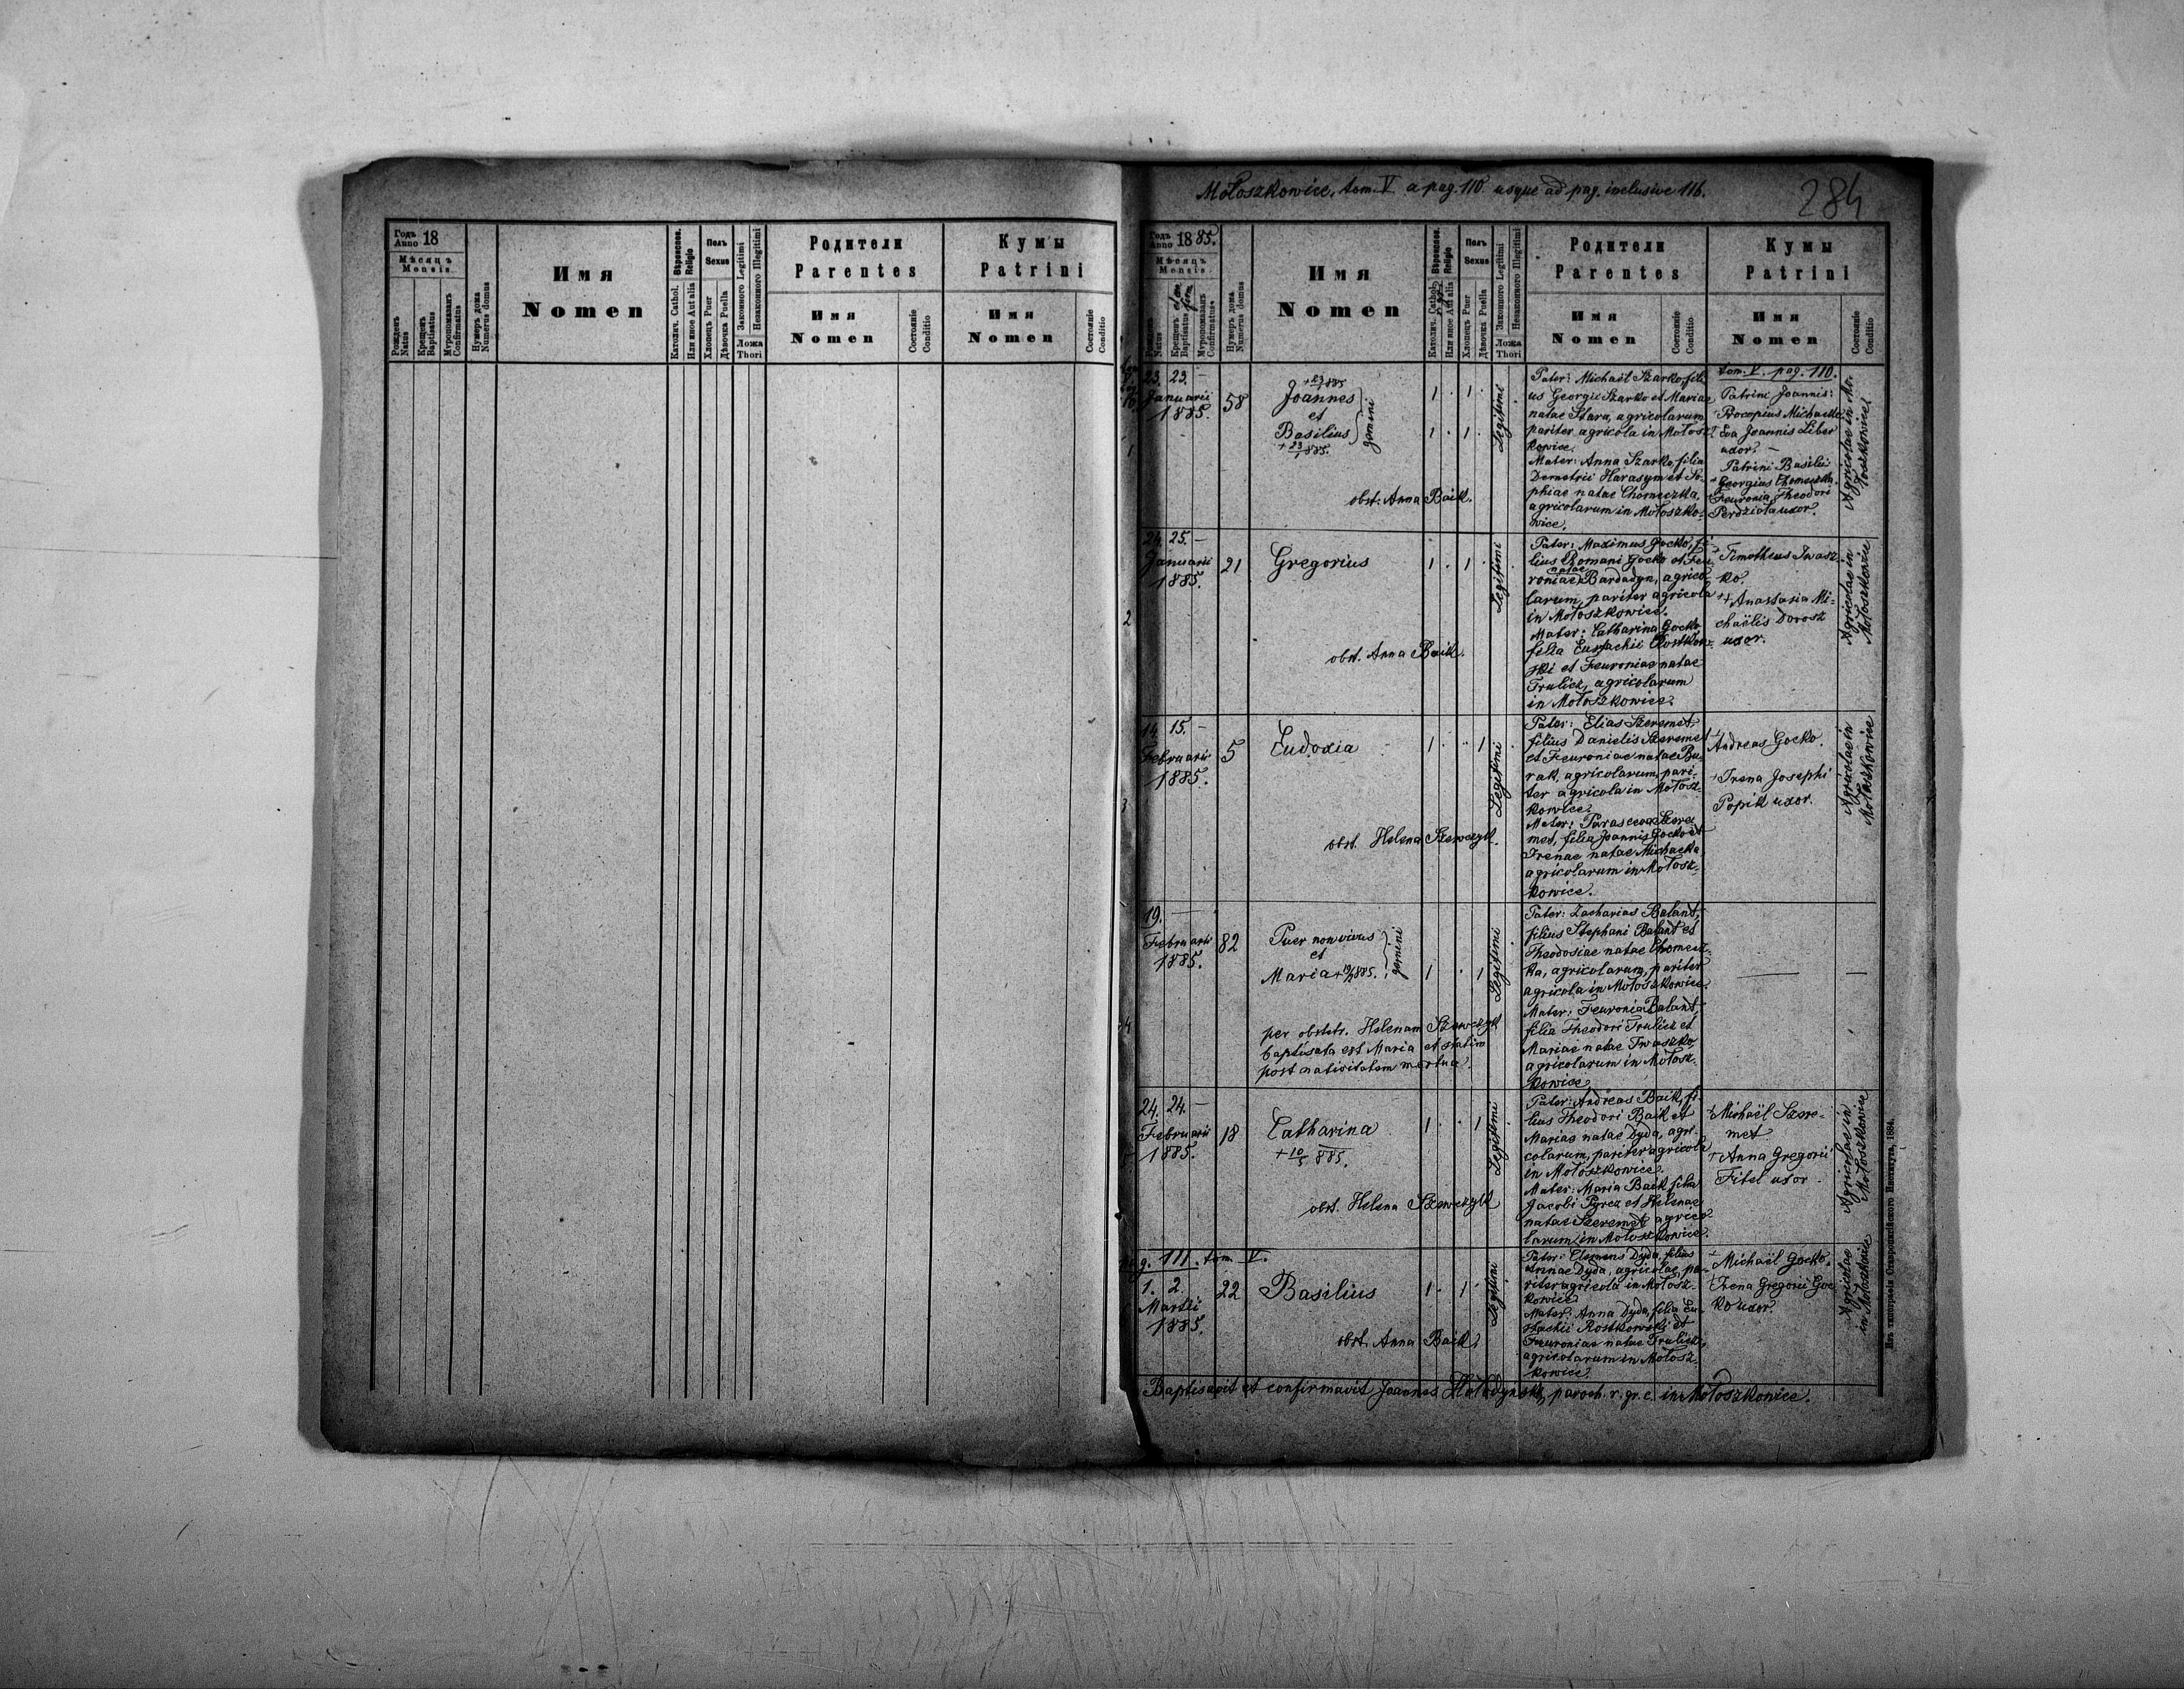 Mołoszkowice, tom. V. a pag. 110. usque ad pag. inclusive 116.
284
Годъ Anno 18
Мѣсяцъ Mensis
Рожденъ Natus
Крещенъ Baptisatus
Мѵропомазанъ Confirmatus
Нумеръ дома Numerus domus
Имя
Nomen
Вѣроиспов. Religio
Католич. Cathol.
Или иное Aut alia
Полъ Sexus
Хлопецъ Puer
Дѣвочка Puella
Законного Legitimi
Незаконного Illegitimi
Ложа Thori
Родители
Parentes
Имя
Nomen
Состояніе Conditio
Кумы
Patrini
Имя
Nomen
Состояніе Conditio
Годъ Anno 1885.
Мѣсяцъ Mensis
Natus
Крещенъ Baptisatus
Мѵропомазанъ Confirmatus
Нумеръ дома Numerus domus
Имя
Nomen
Вѣроиспов. Religio
Католич. Cathol.
Или иное Aut alia
Полъ Sexus
Хлопецъ Puer
Дѣвочка Puella
Законного Legitimi
Незаконного Illegitimi
Ложа Thori
Родители
Parentes
Имя
Nomen
Состояніе Conditio
Кумы
Patrini
Имя
Nomen
Состояніе Conditio
23. 23. –
Januarii
1885.
58
Joannes
et
Basilius
+ 23/1 885.
gemini
obst. Anna Baik.
1 · 1 ·
1 · 1 ·
Legitimi
Pater: Michaël Szarko, fili-
us Georgii Szarko et Mariae
natae Stara, agricolarum
pariter agricola in Mołosz-
kowice.
Mater: Anna Szarko, filia
Demetrii Harasym et So-
phiae natae Chomeczka,
agricolarum in Mołoszko-
wice.
tom. V. pag. 110.
Patrini Joannis:
Procopius Michaełko
Eva Joannis Liber
uxor. –
Patrini Basilii
Georgius Chomeczka
Feuronia Theodori
Perdzioła uxor.
Agricolae in Mo-
łoszkowice.
2
24. 25. –
Januarii
1885.
21
Gregorius
obst. Anna Baik.
1 · 1 ·
Legitimi
Pater: Maximus Gocko, fi-
lius Romani Gocko et Feu-
roniae natae Bardadyn, agrico-
larum, pariter agricola
in Mołoszkowice.
Mater: Catharina Gocko
filia Eustachii Rostkow-
ski et Feuroniae natae
Trulicz, agricolarum
in Mołoszkowice.
Timotheus Iwasz-
ko.
Anastasia Mi-
chaëlis Dorosz
uxor.
Agricolae in
Mołoszkowice
3
14. 15. –
Februarii
1885.
5
Eudoxia
obst. Helena Szewczyk.
1 · · 1
Legitimi
Pater: Elias Szeremet,
filius Danielis Szeremet
et Feuroniae natae Bu-
rak, agricolarum, pari-
ter agricola in Mołosz-
kowice.
Mater: Parascewa Szere-
met, filia Joannis Gocko et
Irenae natae Michaełko
agricolarum in Mołosz-
kowice.
Andreas Gocko.
Irena Josephi
Popik uxor.
Agricolae in
Mołoszkowice
4
19. —
Februarii
1885.
82
Puer non vivus
et
Maria + 19/2 885.
gemini
per obstetr. Helenam Szewczyk
baptisata est Maria et statim
post nativitatem mortua.
1 · 1
Legitimi
Pater: Zacharias Bałant,
filius Stephani Bałant et
Theodosiae natae Chomecz-
ka, agricolarum, pariter
agricola in Mołoszkowice.
Mater: Feuronia Bałant,
filia Theodori Trulicz et
Mariae natae Iwaszko,
agricolarum in Mołosz-
kowice
24. 24. –
Februarii
1885.
18
Catharina
+ 10/5 885.
obst. Helena Szewczyk
1 · · 1
Legitimi
Pater: Andreas Baik, fi-
lius Theodori Baik et
Mariae natae Dyda, agri-
colarum, pariter agricola
in Mołoszkowice.
Mater: Maria Baik filia
Jacobi Pyrcz et Helenae
natae Szeremet, agrico-
larum in Mołoszkowice.
Michaël Szere-
met
Anna Gregorii
Fitel uxor.
Agricolae in
Mołoszkowice
pag. 111. tom. V.
1. 2.
Martii
1885.
22
Basilius
obst. Anna Baik.
1 · 1
Legitimi
Pater: Clemens Dyda, filius
Annae Dyda, agricolae, pa-
riter agricola in Mołosz-
kowice
Mater: Anna Dyda, filia Eu-
stachii Rostkowski et
Feuroniae natae Trulicz,
agricolarum in Mołosz-
kowice.
Michaël Gocko.
Irena Gregorii Goc-
ko uxor.
Agricolae
in Mołoszkowice
Baptisavit et confirmavit Joannes Hołodyński, paroch. r. gr. c. in Mołoszkowice.
Изъ типографіи Ставропигійского Института, 1884.